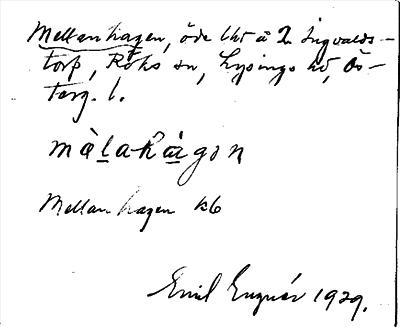 Mellanhagen, öde lht å 2 Ingvalds-
torp, Röks sn, Lysings hd, Ös-
terg. l.
màlahàgon
Mellanhagen
Emil Engnér 1929.